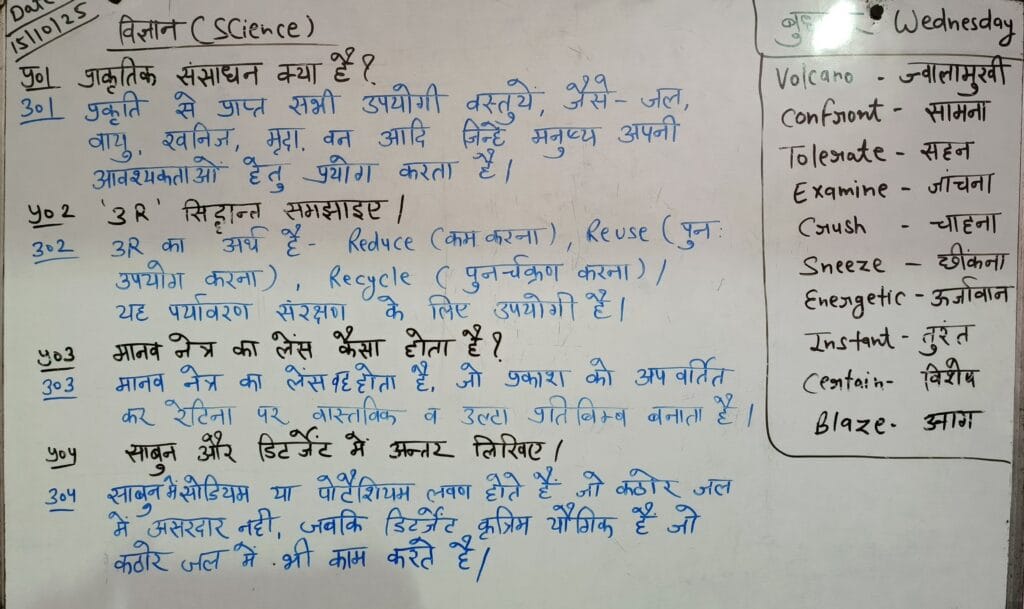 Date
15/10/25
विज्ञान (Science)
प्र01 प्राकृतिक संसाधन क्या है ?
उ01 प्रकृति से प्राप्त सभी उपयोगी वस्तुयें, जैसे - जल,
वायु, खनिज, मृदा, वन आदि जिन्हें मनुष्य अपनी
आवश्यकताओं हेतु प्रयोग करता है।
प्र02 '3R' सिद्धान्त समझाइए।
उ02 3R का अर्थ है - Reduce (कम करना), Reuse (पुनः
उपयोग करना), Recycle (पुनर्चक्रण करना)।
यह पर्यावरण संरक्षण के लिए उपयोगी है।
प्र03 मानव नेत्र का लेंस कैसा होता है ?
उ03 मानव नेत्र का लेंस वह होता है, जो प्रकाश को अपवर्तित
कर रेटिना पर वास्तविक व उल्टा प्रतिबिम्ब बनाता है।
प्र04 साबुन और डिटर्जेंट में अन्तर लिखिए।
उ04 साबुन में सोडियम या पोटैशियम लवण होते हैं जो कठोर जल
में असरदार नहीं, जबकि डिटर्जेंट कृत्रिम यौगिक है जो
कठोर जल में भी काम करते है।
Wednesday
Volcano - ज्वालामुखी
Confront - सामना
Tolerate - सहन
Examine - जांचना
Crush - चाहना
Sneeze - छींकना
Energetic - ऊर्जावान
Instant - तुरंत
Certain - विशेष
Blaze - आग